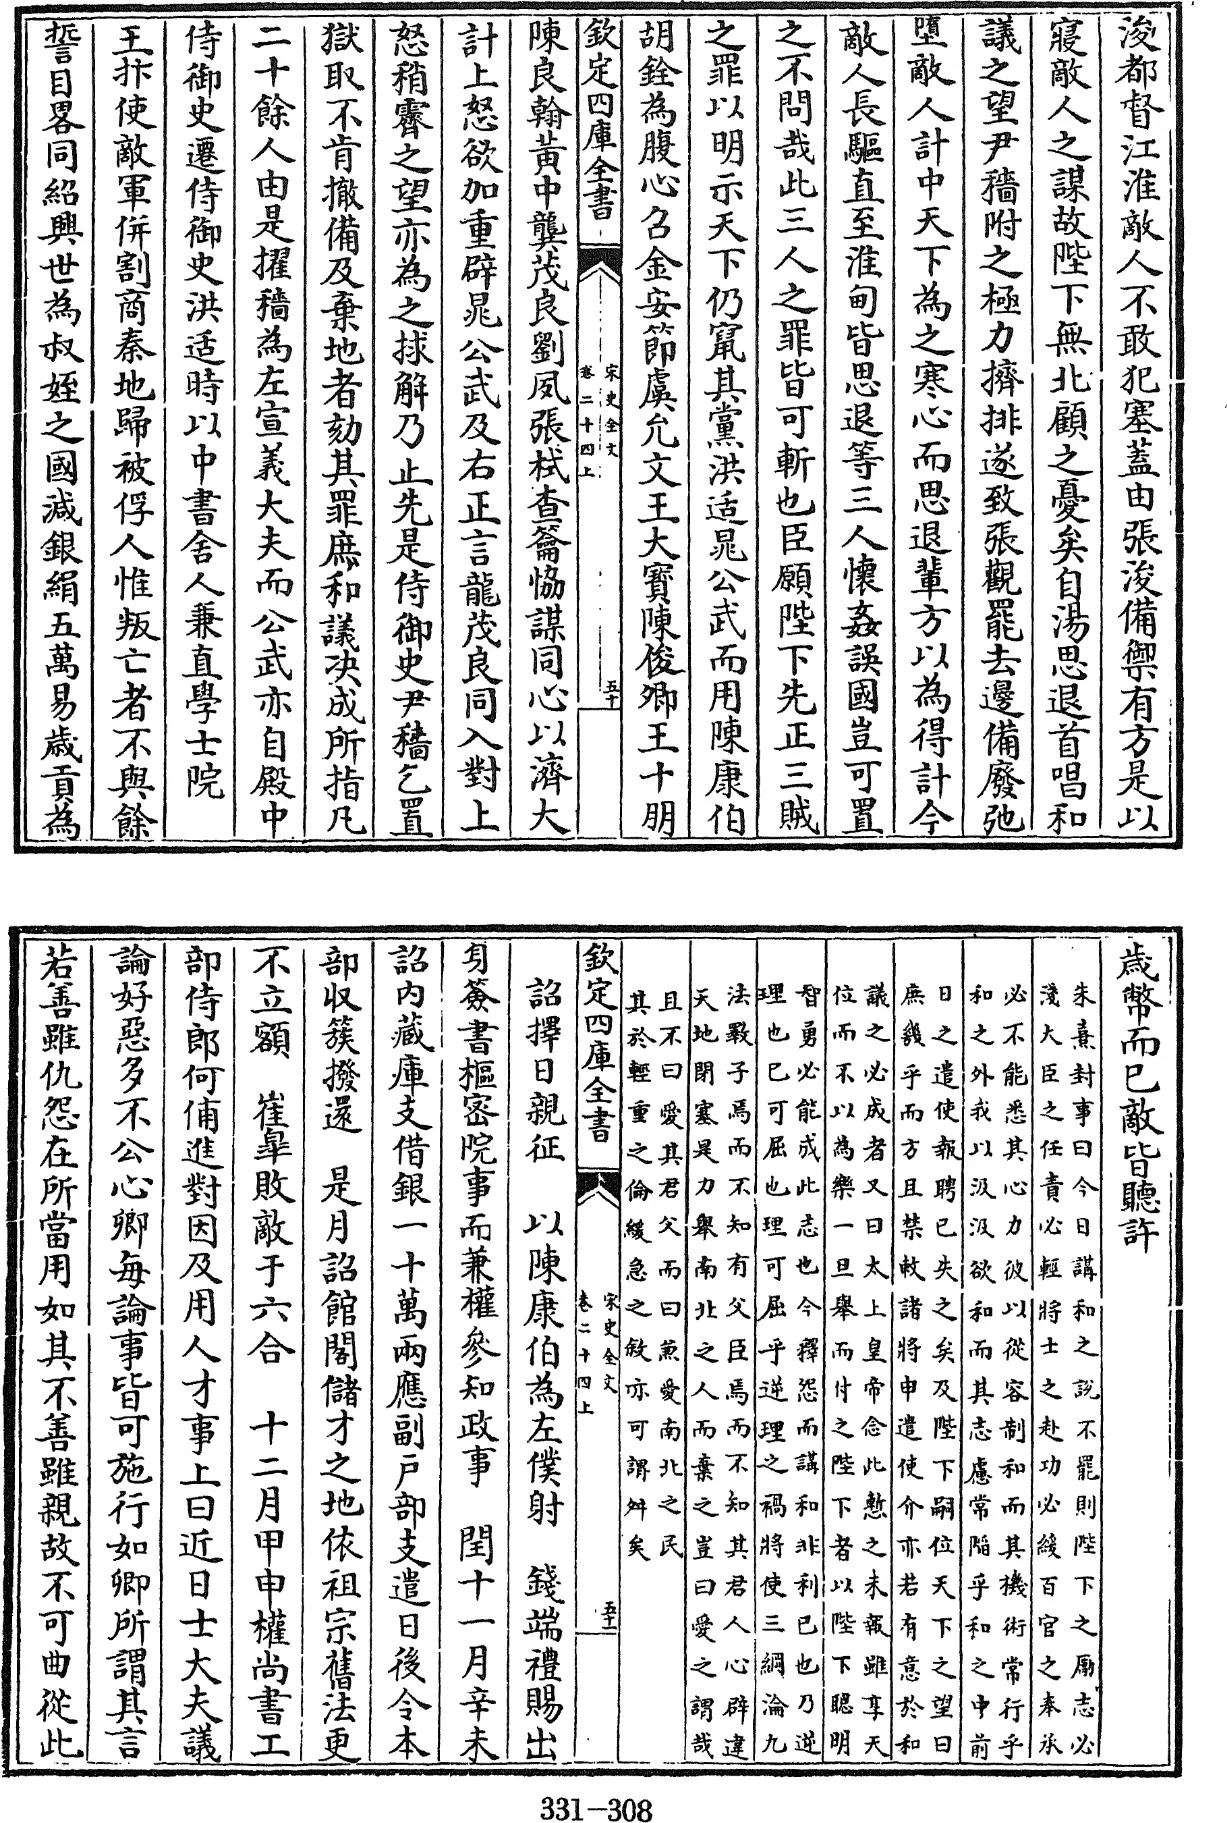 浚都督江淮敵人不敢犯塞蓋由張浚備禦有方是以
寢敵人之謀故陛下無北顧之憂矣自湯思退首唱和
議之望尹穡附之極力擠排遂致張觀罷去邊備廢弛
墮敵人計中天下為之寒心而思退輩方以為得計今
敵人長驅直至淮甸皆思退等三人懷姦誤國豈可置
之不問哉此三人之罪皆可斬也臣願陛下先正三賊
之罪以明示天下仍竄其黨洪适晁公武而用陳康伯
胡銓為腹心召金安節虞允文王大寶陳俊卿王十朋
欽定四庫全書
宋史全文
卷二十四上
五十
陳良翰黃中龔茂良劉夙張栻查籥協謀同心以濟大
計上怒欲加重辟晁公武及右正言龍茂良同入對上
怒稍霽之望亦為之捄解乃止先是侍御史尹穡乞置
獄取不肯撤備及棄地者劾其罪庶和議决成所指凡
二十餘人由是擢穡為左宣義大夫而公武亦自殿中
侍御史遷侍御史洪适時以中書舍人兼直學士院
王抃使敵軍併割商秦地歸被俘人惟叛亡者不與餘
誓目畧同紹興世為叔姪之國減銀絹五萬易歲貢為
歲幣而已敵皆聽許
朱熹封事曰今日講和之說不罷則陛下之厲志必
淺大臣之任責必輕將士之赴功必緩百官之奉承
必不能悉其心力彼以從容制和而其機術常行乎
和之外我以汲汲欲和而其志慮常陷乎和之中前
日之遣使報聘已失之矣及陛下嗣位天下之望曰
庶幾乎而方且禁敕諸將申遣使介亦若有意於和
議之必成者又曰太上皇帝念此慙之未報雖享天
位而不以為樂一旦舉而付之陛下者以陛下聰明
智勇必能成此志也今釋怨而講和非利已也乃逆
理也已可屈也理可屈乎逆理之禍將使三綱淪九
法斁子焉而不知有父臣焉而不知其君人心辟違
天地閉塞是力舉南北之人而棄之豈曰愛之謂哉
且不曰愛其君父而曰兼愛南北之民
其於輕重之倫緩急之敘亦可謂舛矣
欽定四庫全書
宋史全文
卷二十四上
五十一
詔擇日親征　以陳康伯為左僕射　錢端禮賜出
身簽書樞密院事而兼權參知政事　閏十一月辛未
詔內藏庫支借銀一十萬兩應副戶部支遣日後令本
部收簇撥還　是月詔館閣儲才之地依祖宗舊法更
不立額　崔皐敗敵于六合　十二月甲申權尚書工
部侍郎何俌進對因及用人才事上曰近日士大夫議
論好惡多不公心卿每論事皆可施行如卿所謂其言
若善雖仇怨在所當用如其不善雖親故不可曲從此
331-308